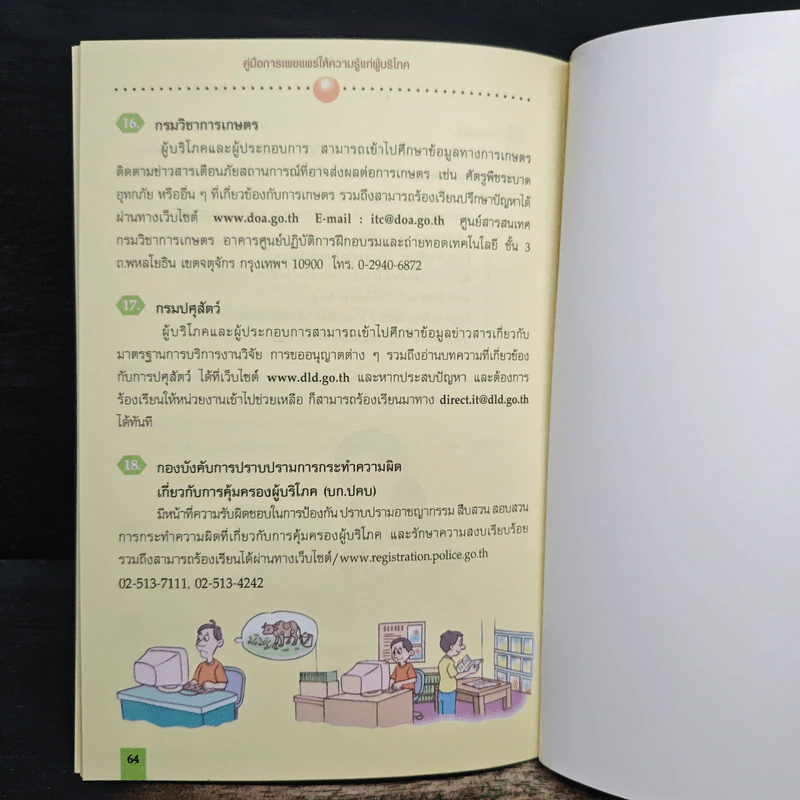 คู่มือการเผยแพร่ให้ความรู้แก่ผู้บริโภค
16. กรมวิชาการเกษตร
ผู้บริโภคและผู้ประกอบการ สามารถเข้าไปศึกษาข้อมูลทางการเกษตร
ติดตามข่าวสารเตือนภัยสถานการณ์ที่อาจส่งผลต่อการเกษตร เช่น ศัตรูพืชระบาด
อุทกภัย หรืออื่น ๆ ที่เกี่ยวข้องกับการเกษตร รวมถึงสามารถร้องเรียนปรึกษาปัญหาได้
ผ่านทางเว็บไซต์ www.doa.go.th E-mail : itc@doa.go.th ศูนย์สารสนเทศ
กรมวิชาการเกษตร อาคารศูนย์ปฏิบัติการฝึกอบรมและถ่ายทอดเทคโนโลยี ชั้น 3
ถ.พหลโยธิน เขตจตุจักร กรุงเทพฯ 10900 โทร. 0-2940-6872
17. กรมปศุสัตว์
ผู้บริโภคและผู้ประกอบการสามารถเข้าไปศึกษาข้อมูลข่าวสารเกี่ยวกับ
มาตรฐานการบริการงานวิจัย การขออนุญาตต่าง ๆ รวมถึงอ่านบทความที่เกี่ยวข้อง
กับการปศุสัตว์ ได้ที่เว็บไซต์ www.dld.go.th และหากประสบปัญหา และต้องการ
ร้องเรียนให้หน่วยงานเข้าไปช่วยเหลือ ก็สามารถร้องเรียนมาทาง direct.it@dld.go.th
ได้ทันที
18. กองบังคับการปราบปรามการกระทำความผิด
เกี่ยวกับการคุ้มครองผู้บริโภค (บก.ปคบ)
มีหน้าที่ความรับผิดชอบในการป้องกัน ปราบปรามอาชญากรรม สืบสวน สอบสวน
การกระทำความผิดที่เกี่ยวกับการคุ้มครองผู้บริโภค และรักษาความสงบเรียบร้อย
รวมถึงสามารถร้องเรียนได้ผ่านทางเว็บไซต์/www.registration.police.go.th
02-513-7111, 02-513-4242
64